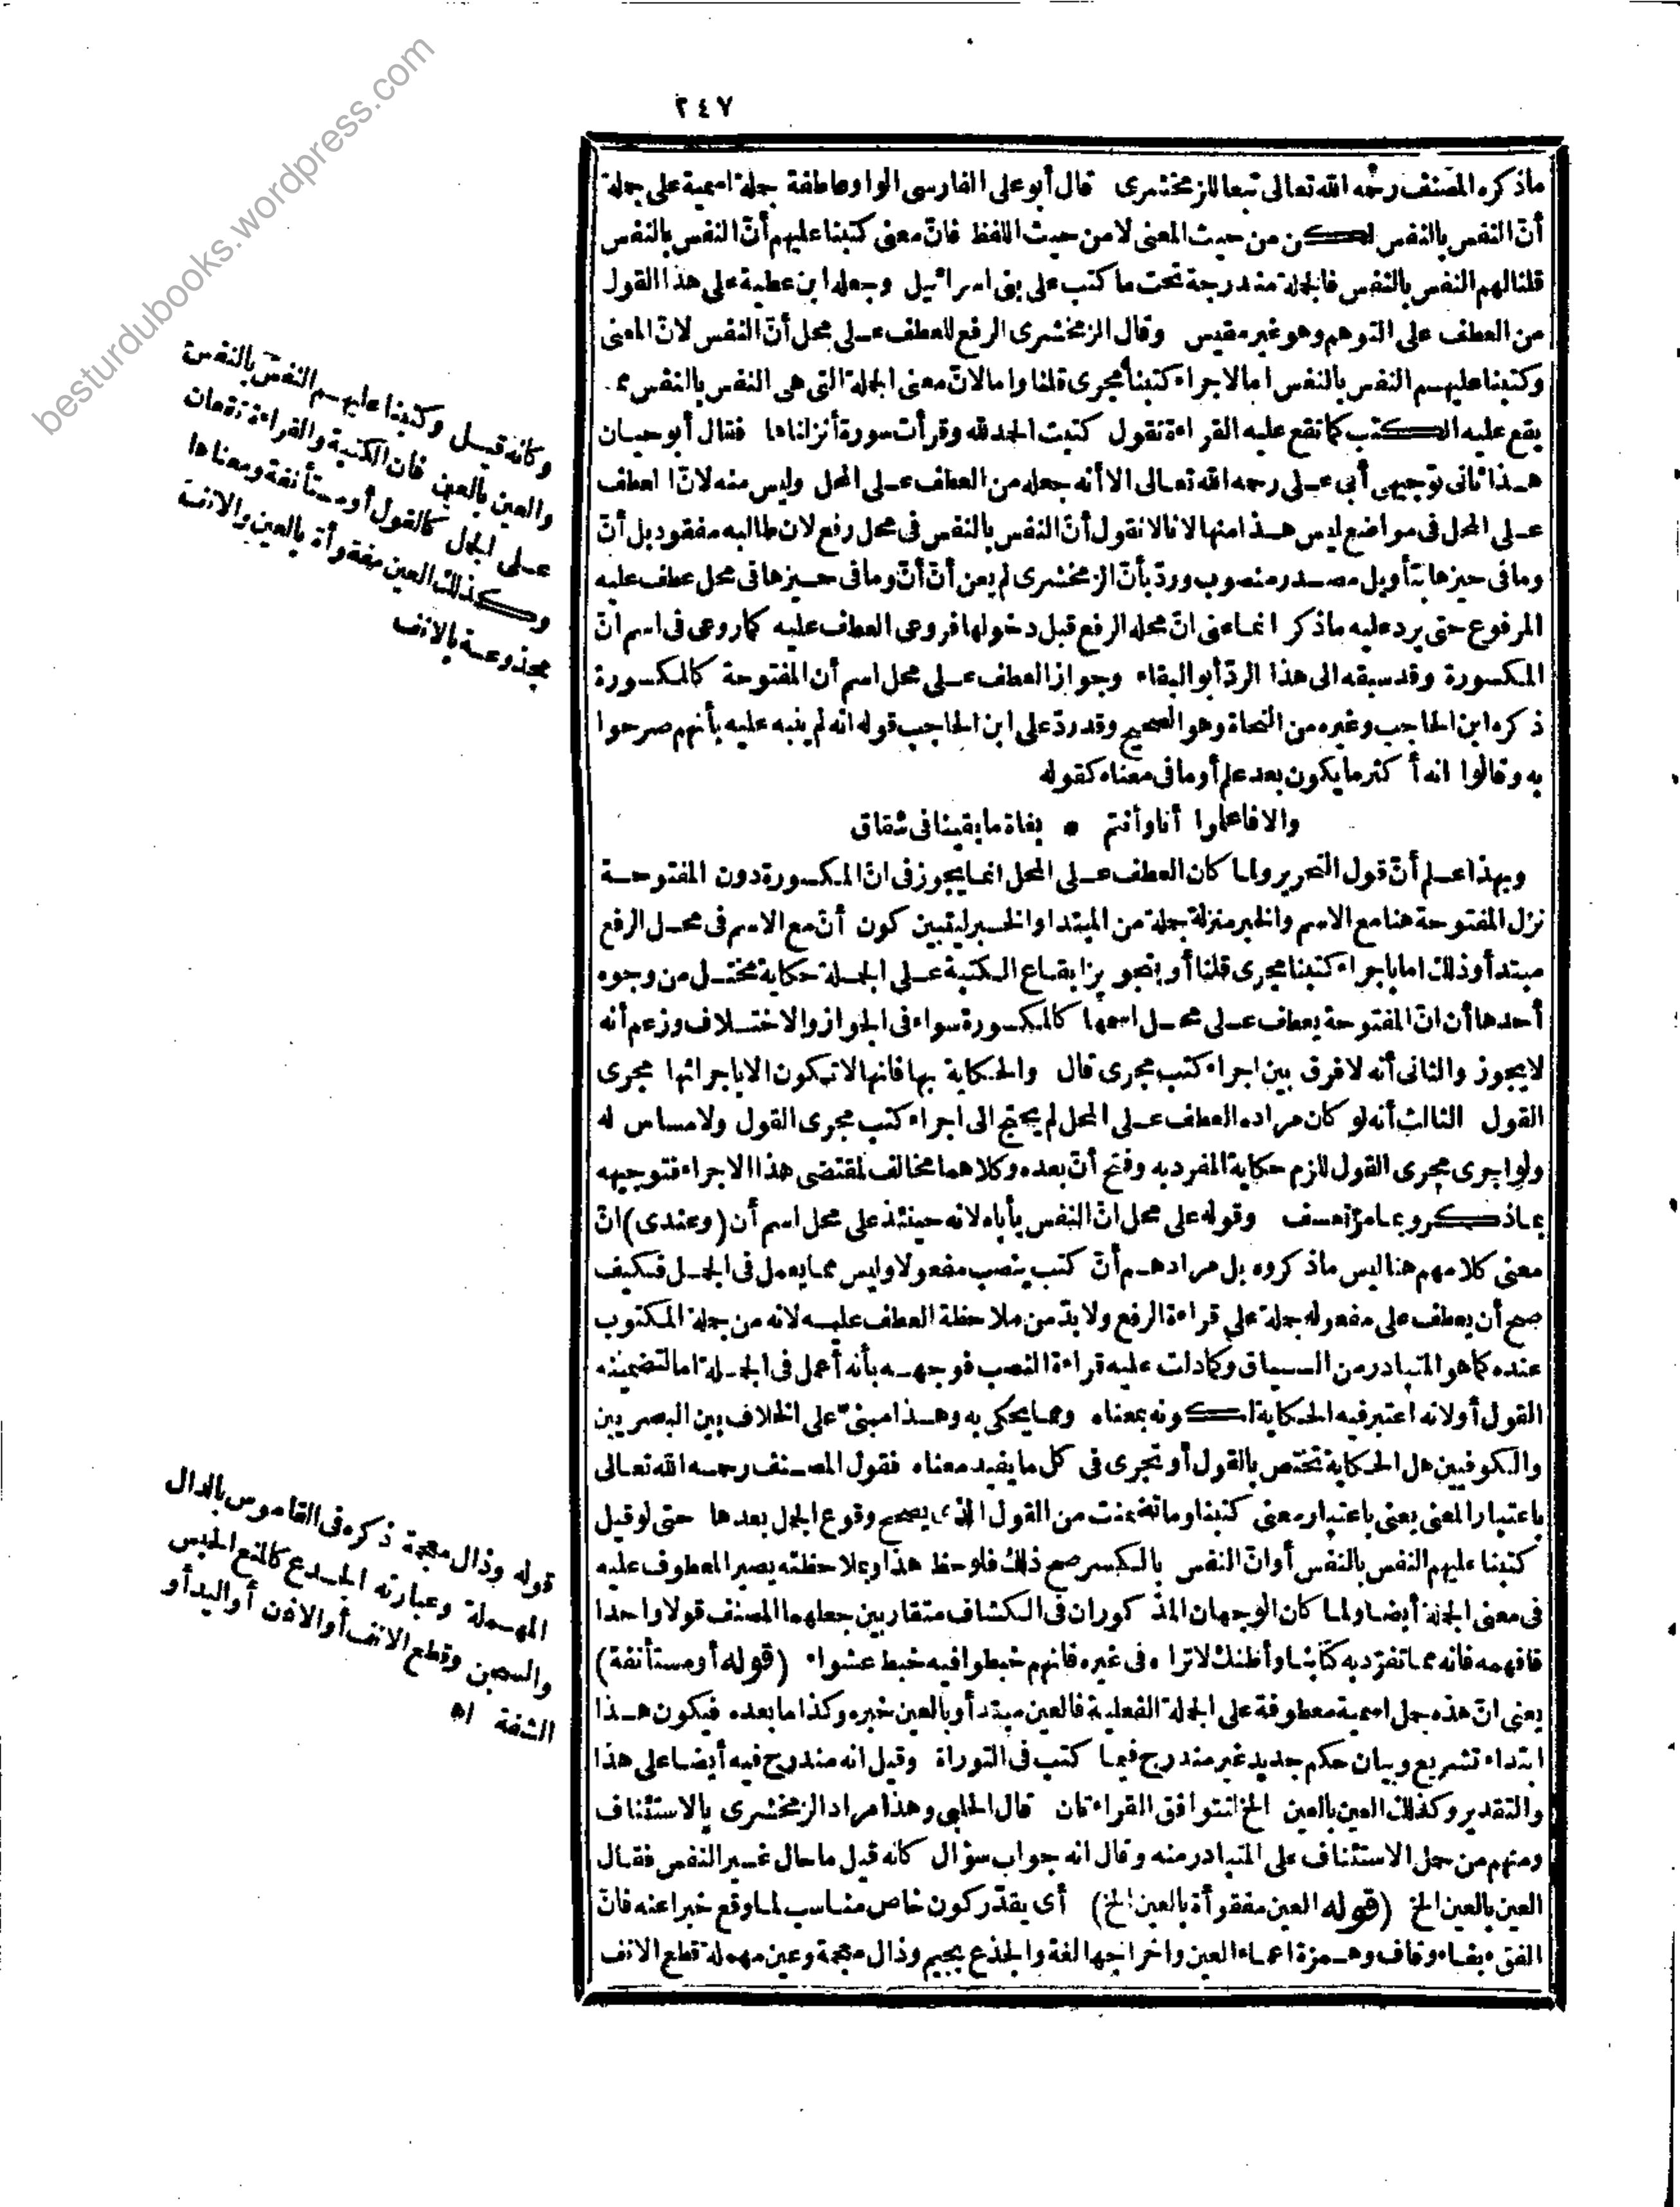 ٢٤٧
ماذكره المصنف رحمه الله تعالى تبعا للزمخشرى قال أبو على الفارسى الواو عاطفة جملة اسمية على جملة
أنّ النفس بالنفس لكن من حيث المعنى لا من حيث اللفظ فانّ معنى كتبنا عليهم أنّ النفس بالنفس
قلنا لهم النفس بالنفس فالجملة مندرجة تحت ما كتب على بنى اسرائيل وجعله ابن عطية على هذا القول
من العطف على التوهم وهو غير مقيس وقال الزمخشرى الرفع للعطف على محل أنّ النفس لانّ المعنى
وكتبنا عليهم النفس بالنفس امالاجراء كتبنا مجرى قلنا وامالانّ معنى الجملة التى هى النفس بالنفس مما
يقع عليه الكتب كما تقع عليه القراءة تقول كتبت الحمد لله وقرأت سورة أنزلناها فقال أبو حيان
هذا ثانى توجيهى أبى على رحمه الله تعالى الا أنه جعله من العطف على المحل وليس منه لانّ العطف
على المحل فى مواضع ليس هذا منها لانا لا نقول أنّ النفس بالنفس فى محل رفع لان طالبه مفقود بل أنّ
وما فى حيزها بتأويل مصدر منصوب وردّ بأنّ الزمخشرى لم يعن أنّ أنّ وما فى حيزها فى محل عطف عليه
المرفوع حتى يرد عليه ماذكر انما عنى انّ محله الرفع قبل دخولها فروعى العطف عليه كما روعى فى اسم انّ
المكسورة وقد سبقه الى هذا الردّ أبو البقاء وجواز العطف على محل اسم أن المفتوحة كالمكسورة
ذكره ابن الحاجب وغيره من النحاة وهو الصحيح وقد ردّ على ابن الحاجب قوله انه لم ينبه عليه بأنهم صرحوا
به وقالوا انه أكثر ما يكون بعد علم أو ما فى معناه كقوله
والا فاعلموا أنا وأنتم * بغاة ما بقينا فى شقاق
وبهذا علم أنّ قول النحرير ولما كان العطف على المحل انما يجوز فى انّ المكسورة دون المفتوحة
نزل المفتوحة هنا مع الاسم والخبر منزلة جملة من المبتدا والخبر ليتبين كون أنّ مع الاسم فى محل الرفع
مبتدأ وذلك اما باجراء كتبنا مجرى قلنا أو بتجويز ايقاع الكتبة على الجملة حكاية مختل من وجوه
أحدها أن انّ المفتوحة يعطف على محل اسمها كالمكسورة سواء فى الجواز والاختلاف وزعم أنه
لا يجوز والثانى أنه لا فرق بين اجراء كتب مجرى قال والحكاية بها فانها لا تكون الا باجرائها مجرى
القول الثالث أنه لو كان مراده العطف على المحل لم يحتج الى اجراء كتب مجرى القول ولا مساس له
ولو اجرى مجرى القول للزم حكاية المفرد به وفتح أنّ بعده وكلاهما مخالف لمقتضى هذا الاجراء فتوجيهه
بما ذكر وبما مرّ تعسف وقوله على محل انّ النفس يأباه لانه حينئذ على محل اسم أن (وعندى) انّ
معنى كلامهم هنا ليس ماذكروه بل مرادهم أنّ كتب ينصب مفعولا وليس مما يعمل فى الجمل فكيف
صح أن يعطف على مفعوله جملة على قراءة الرفع ولا بدّ من ملاحظة العطف عليه لانه من جملة المكتوب
عنده كما هو المتبادر من السياق وكما دلت عليه قراءة النصب فوجهه بأنه أعمل فى الجملة اما لتضمينه
القول أو لانه اعتبر فيه الحكاية لكونه بمعناه ومما يحكى به وهذا مبنىّ على الخلاف بين البصريين
والكوفيين هل الحكاية تختص بالقول أو تجرى فى كل ما يفيد معناه فقول المصنف رحمه الله تعالى
باعتبار المعنى يعنى باعتبار معنى كتبنا وما تضمنت من القول الذى يصحح وقوع الجمل بعدها حتى لو قيل
كتبنا عليهم النفس بالنفس أو انّ النفس بالكسر صح ذلك فلوحظ هذا وبملاحظته يصير المعطوف عليه
فى معنى الجملة أيضا ولما كان الوجهان المذكوران فى الكشاف متقاربين جعلهما المصنف قولا واحدا
فافهمه فانه مما تفرّد به كتابنا وأظنك لا تراه فى غيره فانهم خبطوا فيه خبط عشواء (قوله أو مستأنفة)
يعنى انّ هذه جمل اسمية معطوفة على الجملة الفعلية فالعين مبتدأ وبالعين خبره وكذا ما بعده فيكون هذا
ابتداء تشريع وبيان حكم جديد غير مندرج فيما كتب فى التوراة وقيل انه مندرج فيه أيضا على هذا
والتقدير وكذلك العين بالعين الخ لتتوافق القراءتان قال الحلبى وهذا مراد الزمخشرى بالاستئناف
ومنهم من حمل الاستئناف على المتبادر منه وقال انه جواب سؤال كأنه قيل ما حال غير النفس فقال
العين بالعين الخ (قوله العين مفقوأة بالعين الخ) أى يقدّر كون خاص مناسب لما وقع خبرا عنه فانّ
الفقء بفاء وقاف وهمزة اعماء العين واخراجها لغة والجذع بجيم وذال معجمة وعين مهملة قطع الانف
وكأنه قيل وكتبنا عليهم النفس بالنفس
والعين بالعين فان الكتبة والقراءة تقعان
على الجمل كالقول أو مستأنفة ومعناها
وكذلك العين مفقوأة بالعين والانف
مجذوعة بالانف
قوله وذال معجمة ذكره فى القاموس بالدال
المهملة وعبارته الجدع كالمنع الحبس
والسجن وقطع الانف أو الاذن أو اليد أو
الشفة اه
besturdubooks.wordpress.com